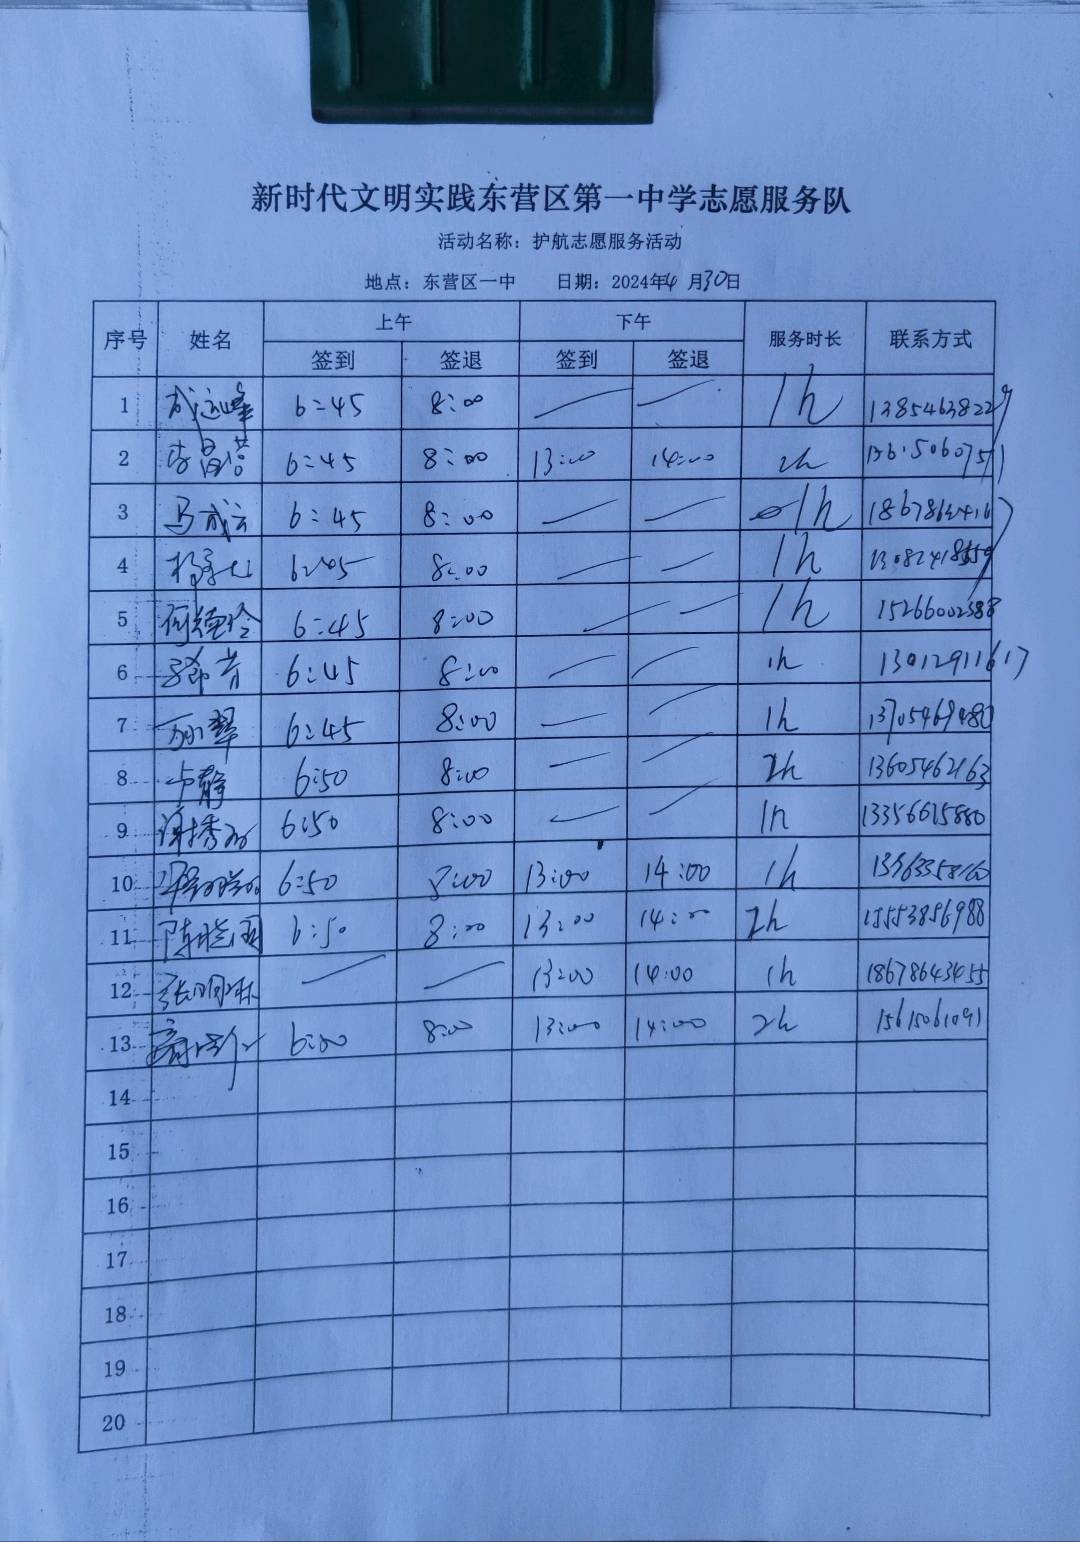 新时代文明实践东营区第一中学志愿服务队
活动名称：护航志愿服务活动
地点：东营区一中 日期：2024年4月30日
序号 姓名 上午 下午 服务时长 联系方式
签到 签退 签到 签退
1 6:45 8:00 — — 1h
2 6:45 8:00 13:00 14:00 2h
3 马成云 6:45 8:00 — — 1h
4 6:45 8:00 — — 1h
5 6:45 8:00 — — 1h 15266002388
6 6:45 8:00 — — 1h 13012911617
7 6:45 8:00 — — 1h 13705469480
8 卢静 6:50 8:00 — — 2h 13605462163
9 6:50 8:00 — — 1h 13356615880
10 6:50 8:00 13:00 14:00 1h
11 6:50 8:00 13:00 14:00 2h 15553856988
12 — — 13:00 14:00 1h 18678643455
13 8:00 13:00 14:00 2h
14
15
16
17
18
19
20